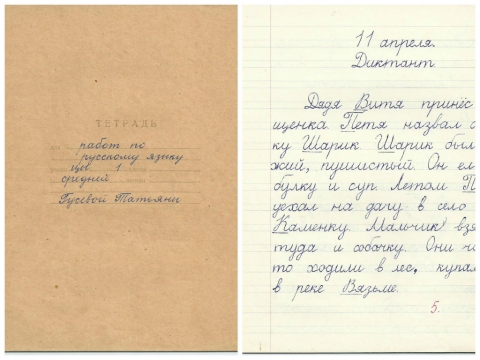 ТЕТРАДЬ
для работ по
русскому языку
1
средней
Гусевой Татьяны
11 апреля.
Диктант
Дядя Витя принёс
щенка. Петя назвал с
ку Шарик. Шарик был
жий, пушистый. Он ел
булку и суп. Летом П
уехал на дачу в село
Каменку. Мальчик взя
туда и собачку. Они ча
то ходили в лес, купал
в реке Вязьме.
5.